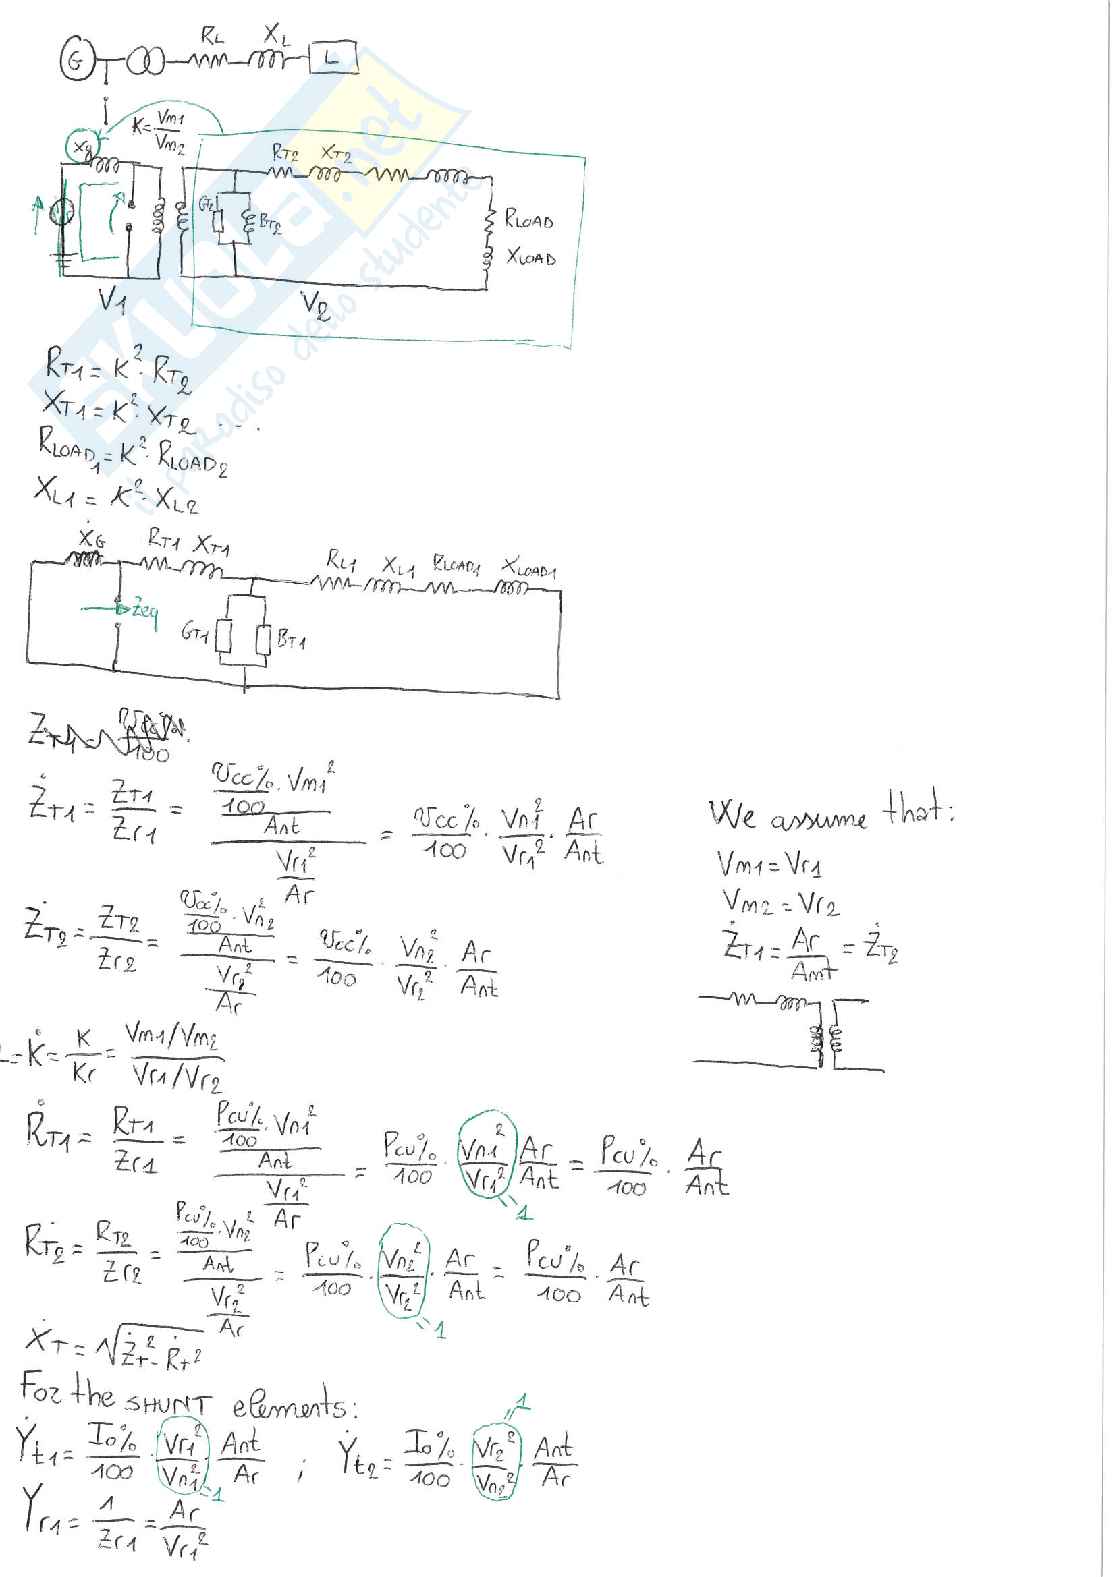 G R_L X_L L
K = Vm1/Vm2
Xg RT2 XT2
GT2 BT2 RLOAD
XLOAD
V1 V2
RT1 = K² · RT2
XT1 = K² · XT2 ...
RLOAD1 = K² · RLOAD2
XL1 = K² · XL2
ẊG RT1 XT1 RL1 XL1 RLOAD1 XLOAD1
Zeq GT1 BT1
ŻT1 = ZT1/Zr1 = (Vcc%/100 · Vm1²/Ant)/(Vr1²/Ar) = Vcc%/100 · Vn1²/Vr1² · Ar/Ant
We assume that:
Vm1 = Vr1
Vm2 = Vr2
ŻT1 = Ar/Ant = ŻT2
ŻT2 = ZT2/Zr2 = (Vcc%/100 · Vn2²/Ant)/(Vr2²/Ar) = Vcc%/100 · Vn2²/Vr2² · Ar/Ant
= K̇ = K/Kr = (Vm1/Vm2)/(Vr1/Vr2)
ṘT1 = RT1/Zr1 = (Pcu%/100 · Vn1²/Ant)/(Vr1²/Ar) = Pcu%/100 · Vn1²/Vr1² · Ar/Ant = Pcu%/100 · Ar/Ant
= 1
ṘT2 = RT2/Zr2 = (Pcu%/100 · Vn2²/Ant)/(Vr2²/Ar) = Pcu%/100 · Vn2²/Vr2² · Ar/Ant = Pcu%/100 · Ar/Ant
= 1
ẊT = √(ŻT² - ṘT²)
For the SHUNT elements:
= 1
Ẏt1 = Io%/100 · Vr1²/Vn1² · Ant/Ar ; Ẏt2 = Io%/100 · Vr2²/Vn2² · Ant/Ar
= 1
Yr1 = 1/Zr1 = Ar/Vr1²
SKUOLA.net
il paradiso dello studente